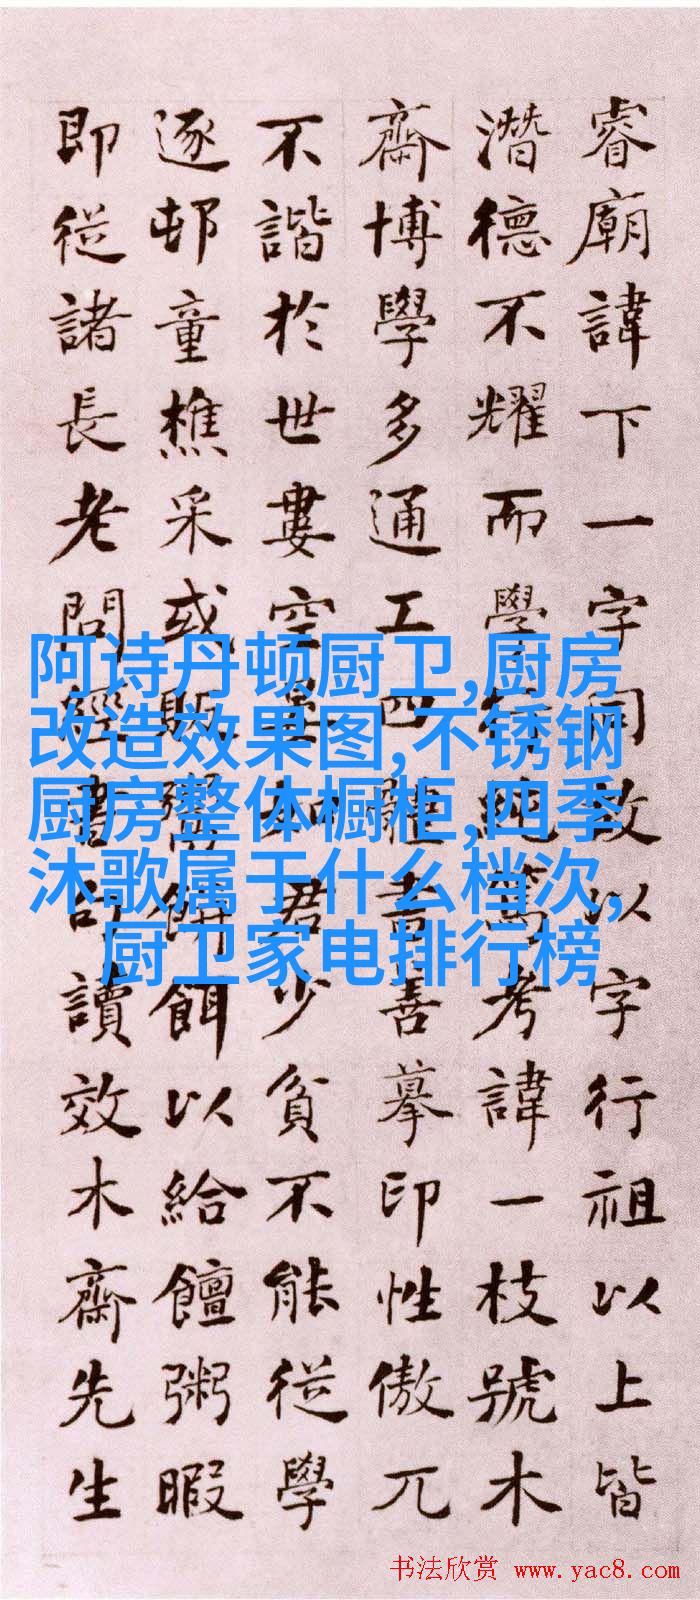 睿廟諱下一字同改以字行祖以上皆
潛德不耀而學行純篤考諱一枝號木
齋博學多通工四體書善摹印性傲兀
不諧於世婁空晏如君少貧不能從學
逐邨童樵采或販鬻餅餌以給饘粥暇
即從諸長老問經書句讀效木齋先生
阿诗丹顿厨卫,厨房
改造效果图,不锈钢
厨房整体橱柜,四季
沐歌属于什么档次,
厨卫家电排行榜
书法欣赏 www.yac8.com